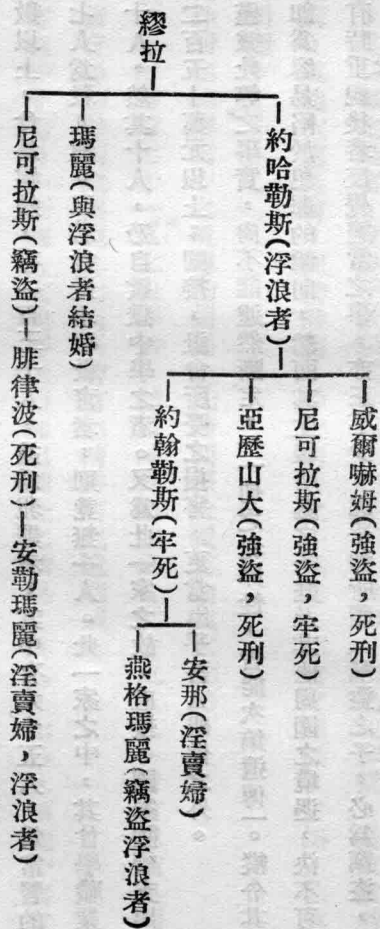 繆拉
約哈勒斯(浮浪者)
威爾嚇姆(強盜,死刑)
尼可拉斯(強盜,牢死)
亞歷山大(強盜,死刑)
約翰勒斯(牢死)
安那(淫賣婦)
燕格瑪麗(竊盜浮浪者)
瑪麗(與浮浪者結婚)
尼可拉斯(竊盜)—腓律波(死刑)—安勒瑪麗(淫賣婦,浮浪者)